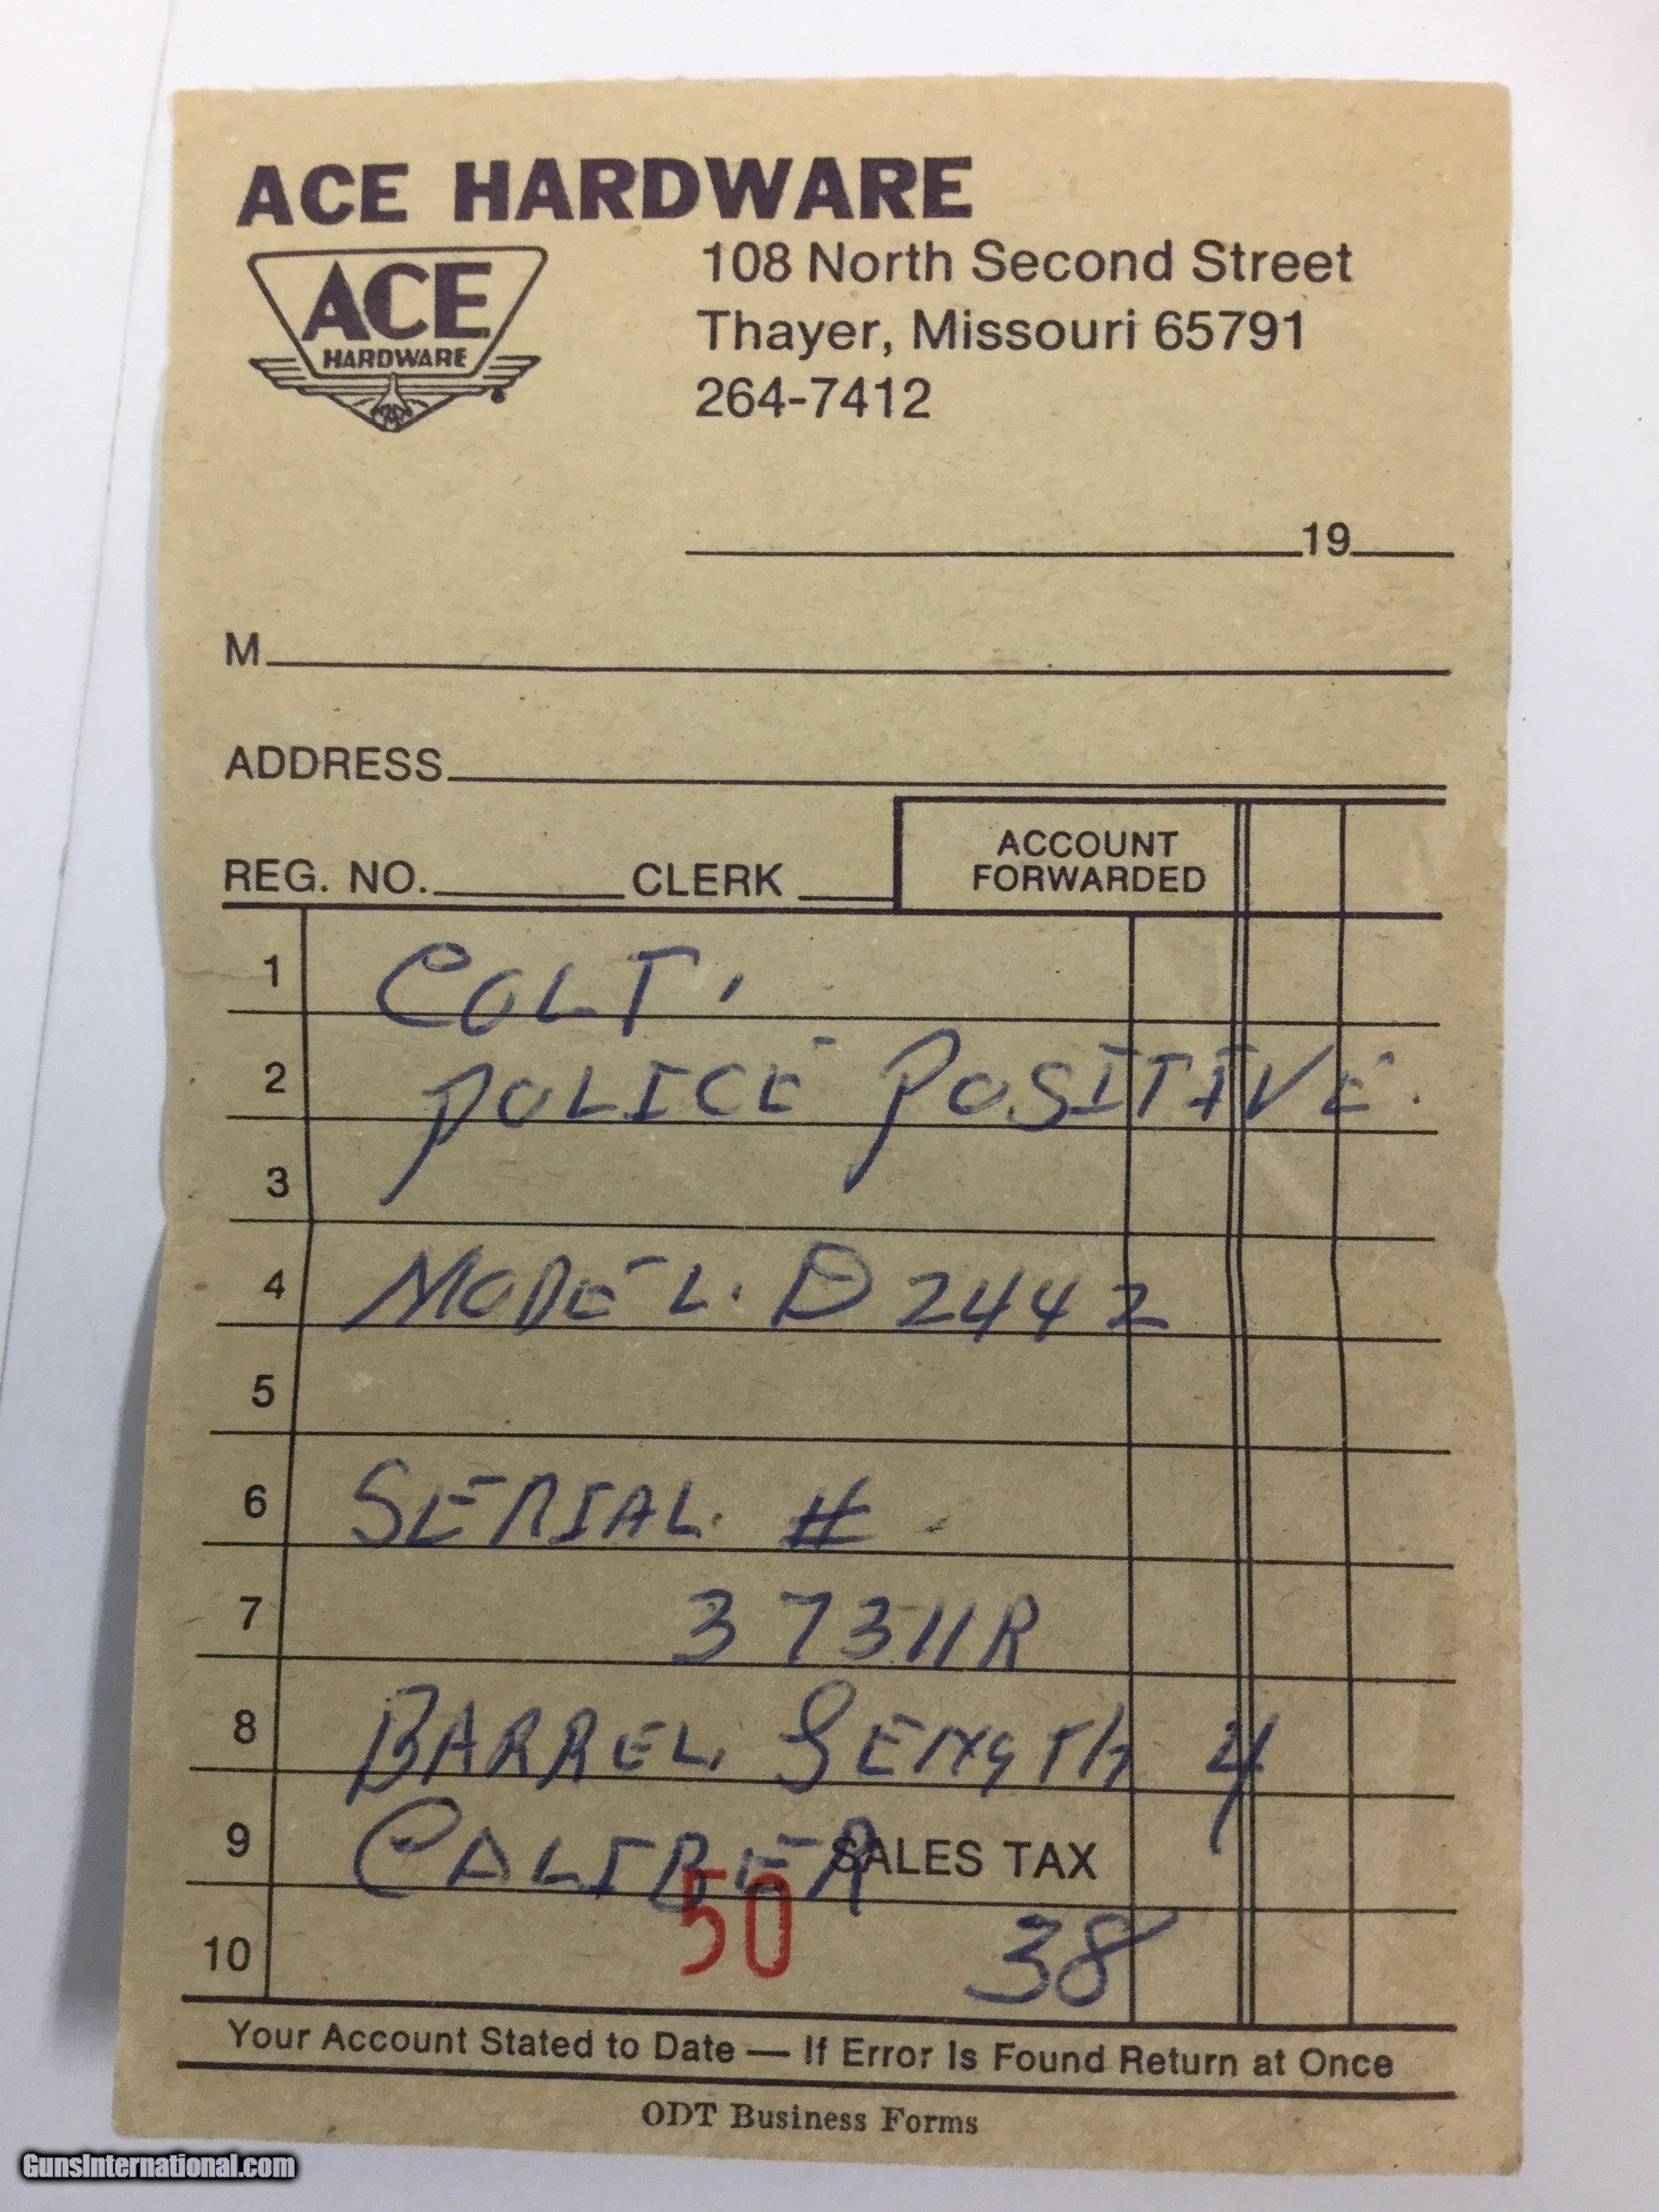 ACE HARDWARE
ACE
HARDWARE
108 North Second Street
Thayer, Missouri 65791
264-7412
19
M
ADDRESS
REG. NO. CLERK
ACCOUNT
FORWARDED
1 COLT,
2 POLICE POSITIVE.
3
4 MODEL. D2442
5
6 SERIAL. #
7 37311R
8 BARREL LENGTH 4
9 CALIBER SALES TAX
50
10 38
Your Account Stated to Date — If Error Is Found Return at Once
ODT Business Forms
GunsInternational.com